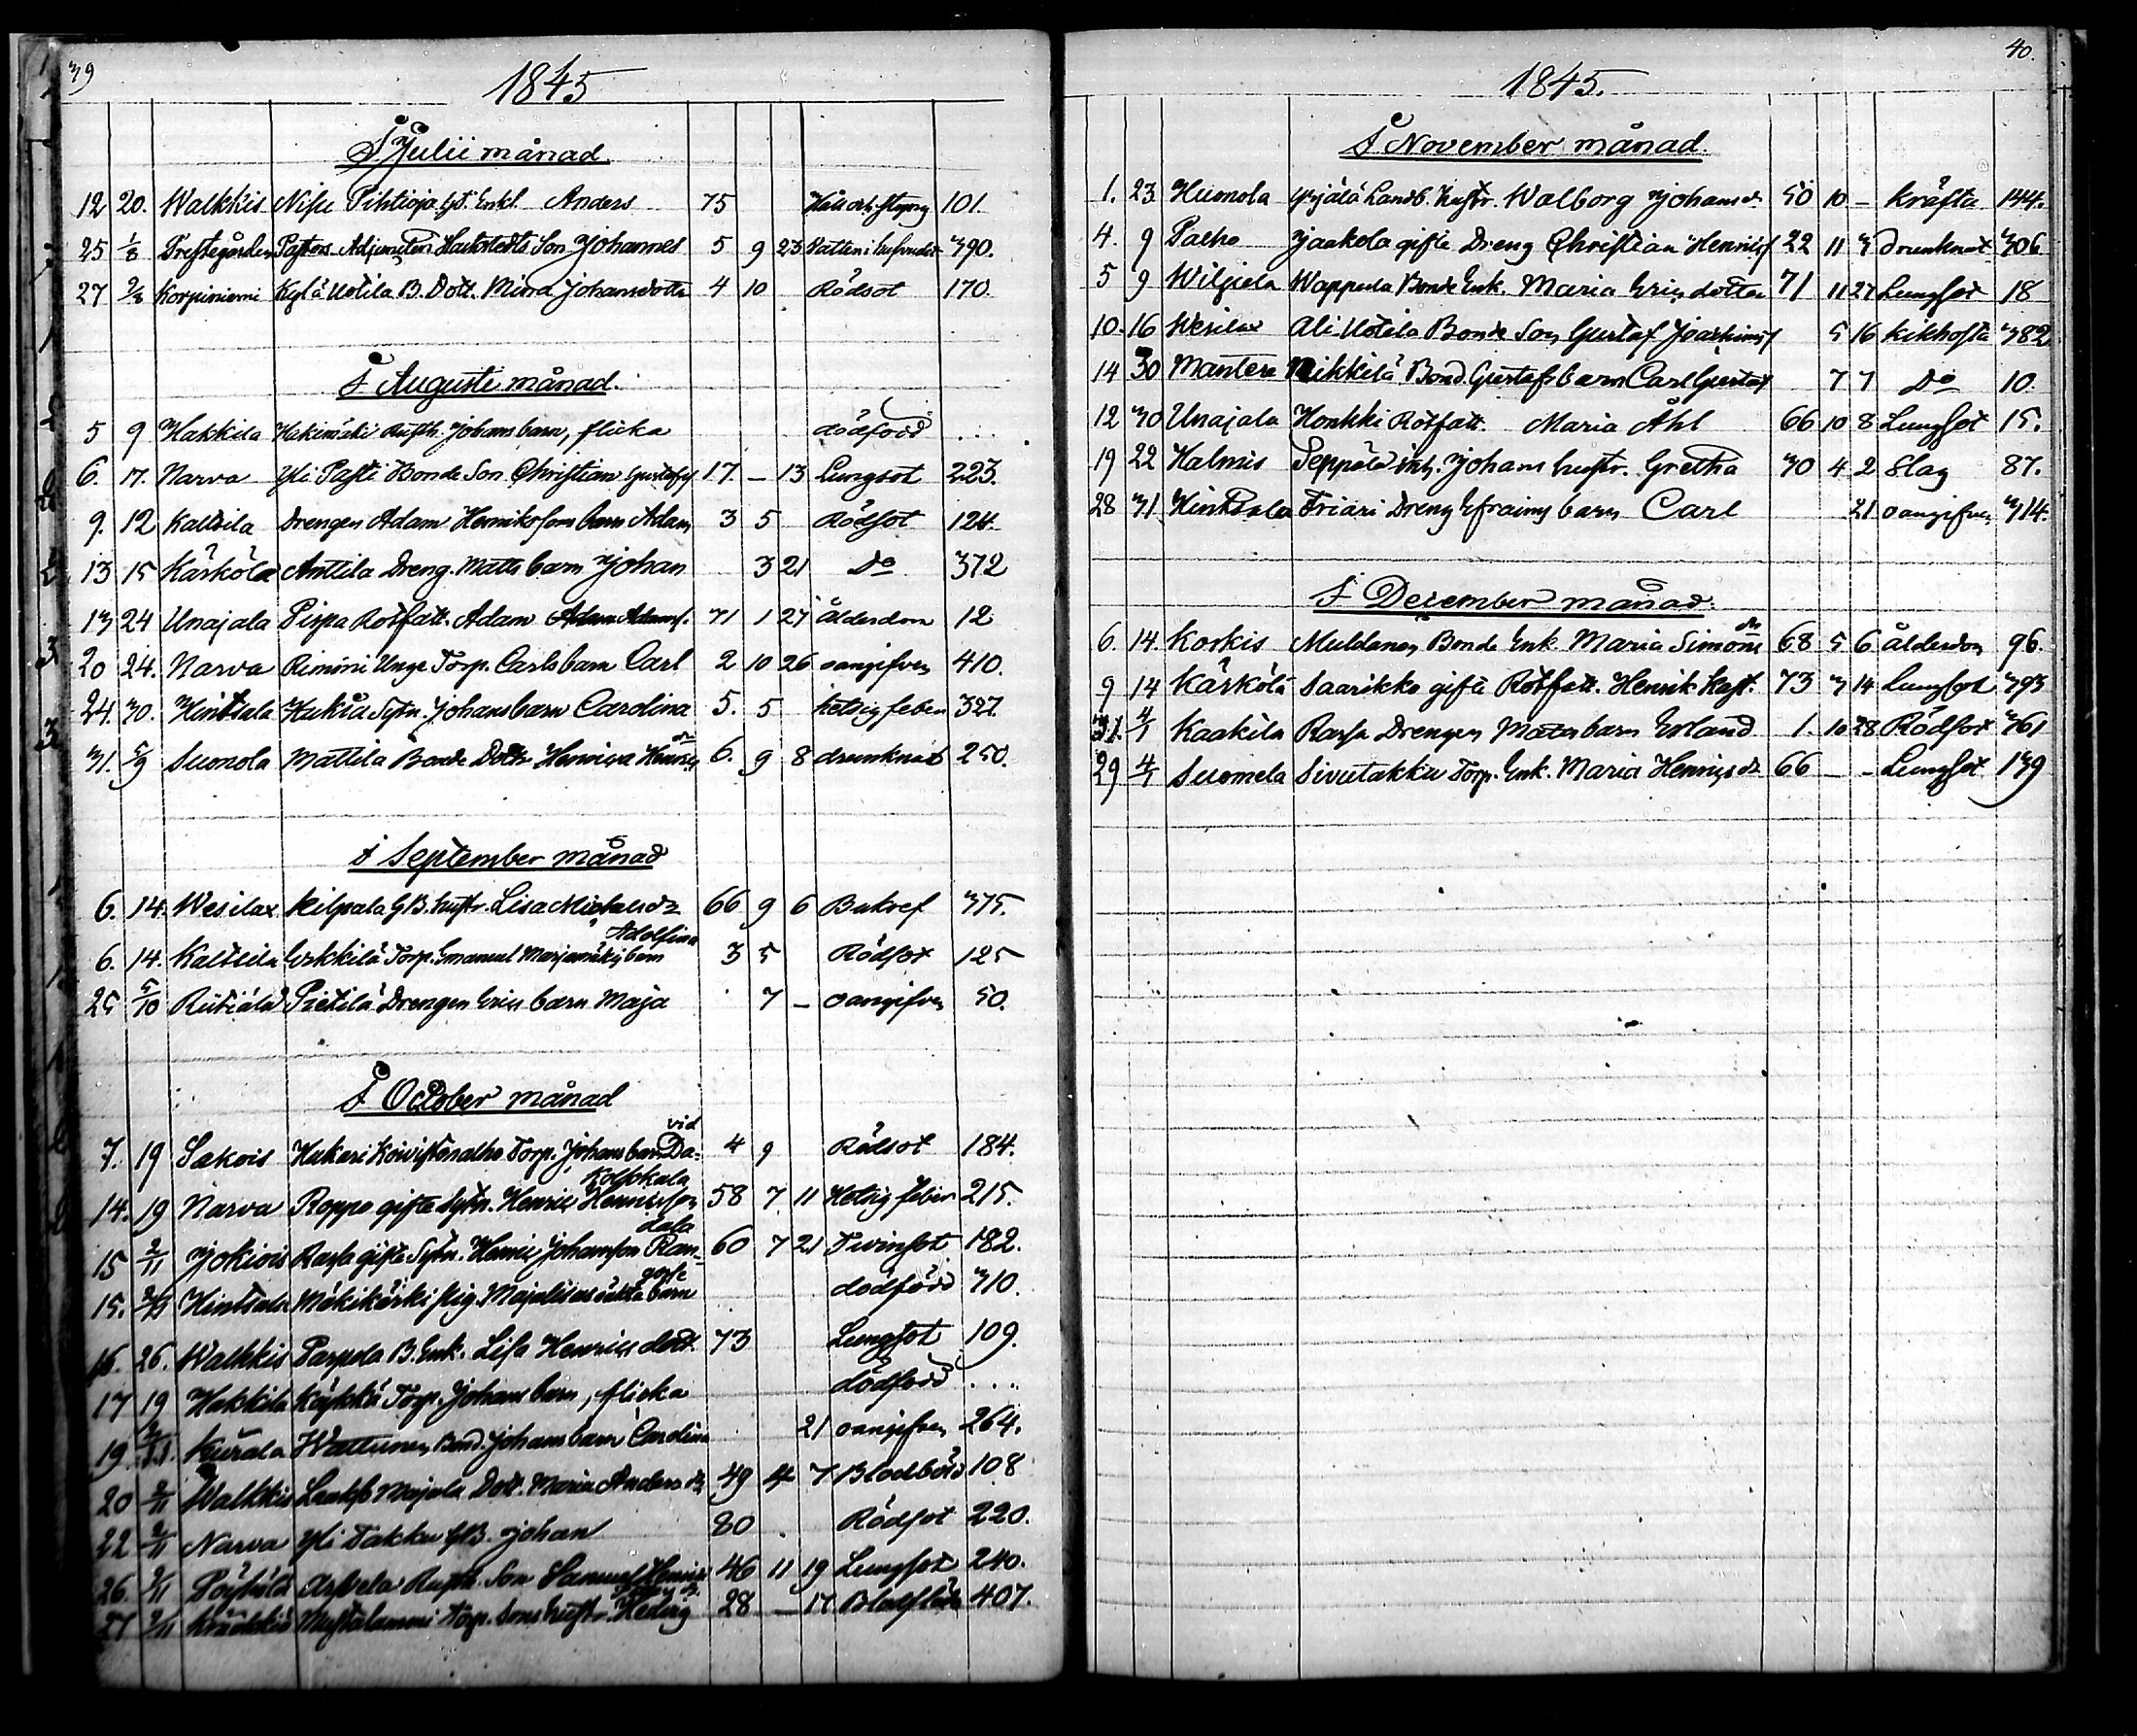 39
1845
I Julii månad.
12 20. Walkkis Nisu Pihtioja Gd. Enkl. Anders 75 Håll och styng 101.
25 1/8 Prestegården Pastors Adjuncten Son Johannes 5 9 23 Vatten i hufvudet 390.
27 2/8 Korpiniemi Kylä Uotila B. Dott. Mina Johansdotter 4 10 Rödsot 170.
I Augusti månad.
5 9 Hakkila Rusth. Johans barn, flicka dödfödd ...
6. 17. Narva Yli Pasti Bonde Son Christian Gustafs 17. – 13 Lungsot 223.
9. 12 Kaltsila Drengen Adam Henriksons barn Adam 3 5 Rödsot 124.
13 15 Kärkölä Anttila Dreng. Matts barn Johan 3 21 Do 372
13 24 Unajala Pispa Rotfatt. Adam Adamss. 71 1 27 ålderdom 12
20 24. Narva Rimini Unge Torp. Carls barn Carl 2 10 26 oangifven 410.
24. 30. Hintsala Kukia Sytn. Johans barn Carolina 5. 5 hetsig feber 327.
31. 5/9 Suomela Mattila Bonde Dottr Henrica Henrics dr 6. 9 8 drunknad 250.
i September månad
6. 14. Wesilax Kilpala GB. hustr. Lisa Michelsdr 66 9 6 Bukref 375.
Adolfina
6. 14. Kaltsila Erkkilä Torp. Emanuel Marjamäkis barn 3 5 Rödsot 125
25 5/10 Rutiälä Pietilä Drengen Erics barn Maja 7 – oangifven 50.
I October månad
vid
7. 19 Sakois Hukari Koivistonalho Torp. Johans barn Da= 4 9 Rödsot 184.
Kolsokala
14. 19 Narva Roppo gifte Sytn. Henric Henricsson 58 7 11 Hetsig feber 215.
dala
15 2/11 Jokiois Rassa gifte Sytn. Henric Johansson Ran= 60 7 21 Tvinsot 182.
gosse
15. 2/11 Hintsala Mäkikärki Pig. Majalisas oäkta barn dödfödd 310.
16. 26. Walkkis Parpola B. Enk. Lisa Henrics dott. 73 Lungsot 109.
17 19 Hakkila Käykkä Torp. Johans barn, flicka dödfödd ...
19 2/11. Kurala Wattunen Bond. Johans barn Carolina 21 oangifven 264.
20 2/11 Walkkis Majala Dott. Maria Anders dr 49 4 7 108
22 2/11 Narva Yli Takku GB. Johan 80 Rödsot 220.
26. 2/11 Pöyhölä Arvela Rusth. Son Samuel Henrics 46 11 19 Lungsot 240.
27 2/11 Krääkkiö Mustalammi Torp. Sons hustr. Hedvig 28 – 17 407.
40.
1845.
I November månad.
1. 23 Huomola Yrjälä Landb. hustr. Walborg Johansdr 50 10 – Kräfta 144.
4. 9 Palho Jaakola gifte Dreng Christian Henricss 22 11 3 drunknat 306
5 9 Wilpiela Wappula Bonde Enk. Maria Ericsdotter 71 11 27 Lungsot 18
10. 16 Wesilax Ali Uotila Bonde Son Gustaf Joachimss 5 16 kikhosta 382
14 30 Mantere Nikkilä Bond. Gustafs barn Carl Gustaf 7 7 Do 10.
12 30 Unajala Honkki Rotfatt. Maria Åhl 66 10 8 Lungsot 15.
19 22 Halmis Seppälä inh. Johans hustr. Gretha 30 4 2 Slag 87.
28 31 Hintsala Friari Dreng Efraims barn Carl 21 oangifven 314.
I December månad.
6. 14. Korkis Muldanen Bonde Enk. Maria Simons dr 68 5 6 ålderdom 96.
9 14 Kärkölä Saarikko gifte Rotfatt. Henrik 73 3 14 Lungsot 393
31. 4/1 Kaakila Rassa Drengen Matts barn Erland 1. 10 28 Rödsot 361
29 4/1 Suomela Sivutakku Torp. Enk. Maria Henricsdr 66 – – Lungsot 139